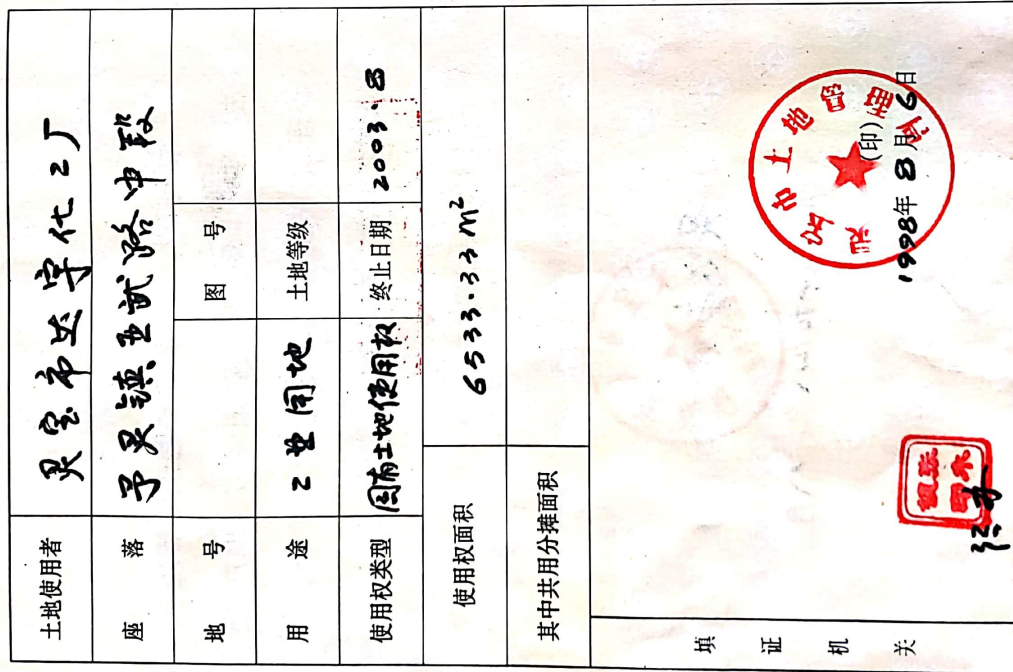 土地使用者 灵宝市达字化工厂
座落 予灵镇五武路中段
地号 图号
用途 工业用地 土地等级
使用权类型 国有土地使用权 终止日期 2003.8
使用权面积 6533.33 m²
其中共用分摊面积
填证机关
灵宝市土地管理局
(印)
1998年8月6日